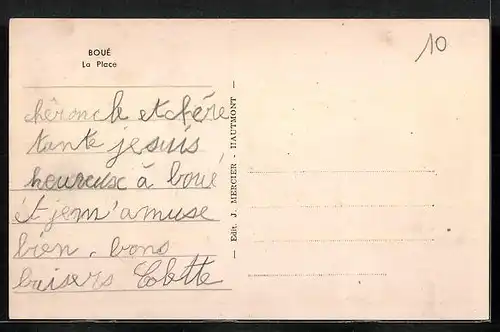 BOUÉ
La Place
10
chèroncle et chère
tante je suis
heureuse à boué
et je m'amuse
bien. bons
baisers Colette
— Edit. J. MERCIER - HAUTMONT —